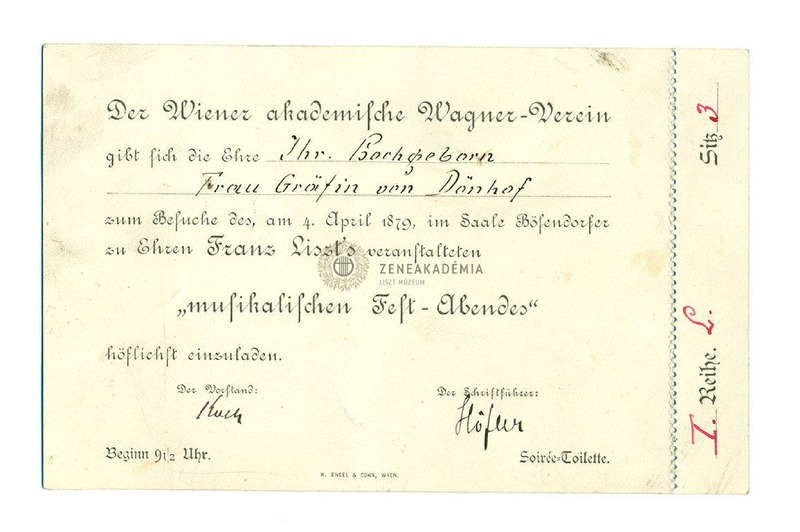 Der Wiener akademische Wagner-Verein
gibt sich die Ehre Ihr. Hochgeborn
Frau Gräfin von Dönhof
zum Besuche des, am 4. April 1879, im Saale Bösendorfer
zu Ehren Franz Liszt's veranstalteten
ZENEAKADÉMIA
LISZT MÚZEUM
„musikalischen Fest-Abendes“
höflichst einzuladen.
Der Vorstand:
Der Schriftführer:
Höfler
Beginn 9 1/2 Uhr.
Soirée-Toilette.
H. ENGEL & SOHN, WIEN.
I. Reihe. L.
Sitz 3